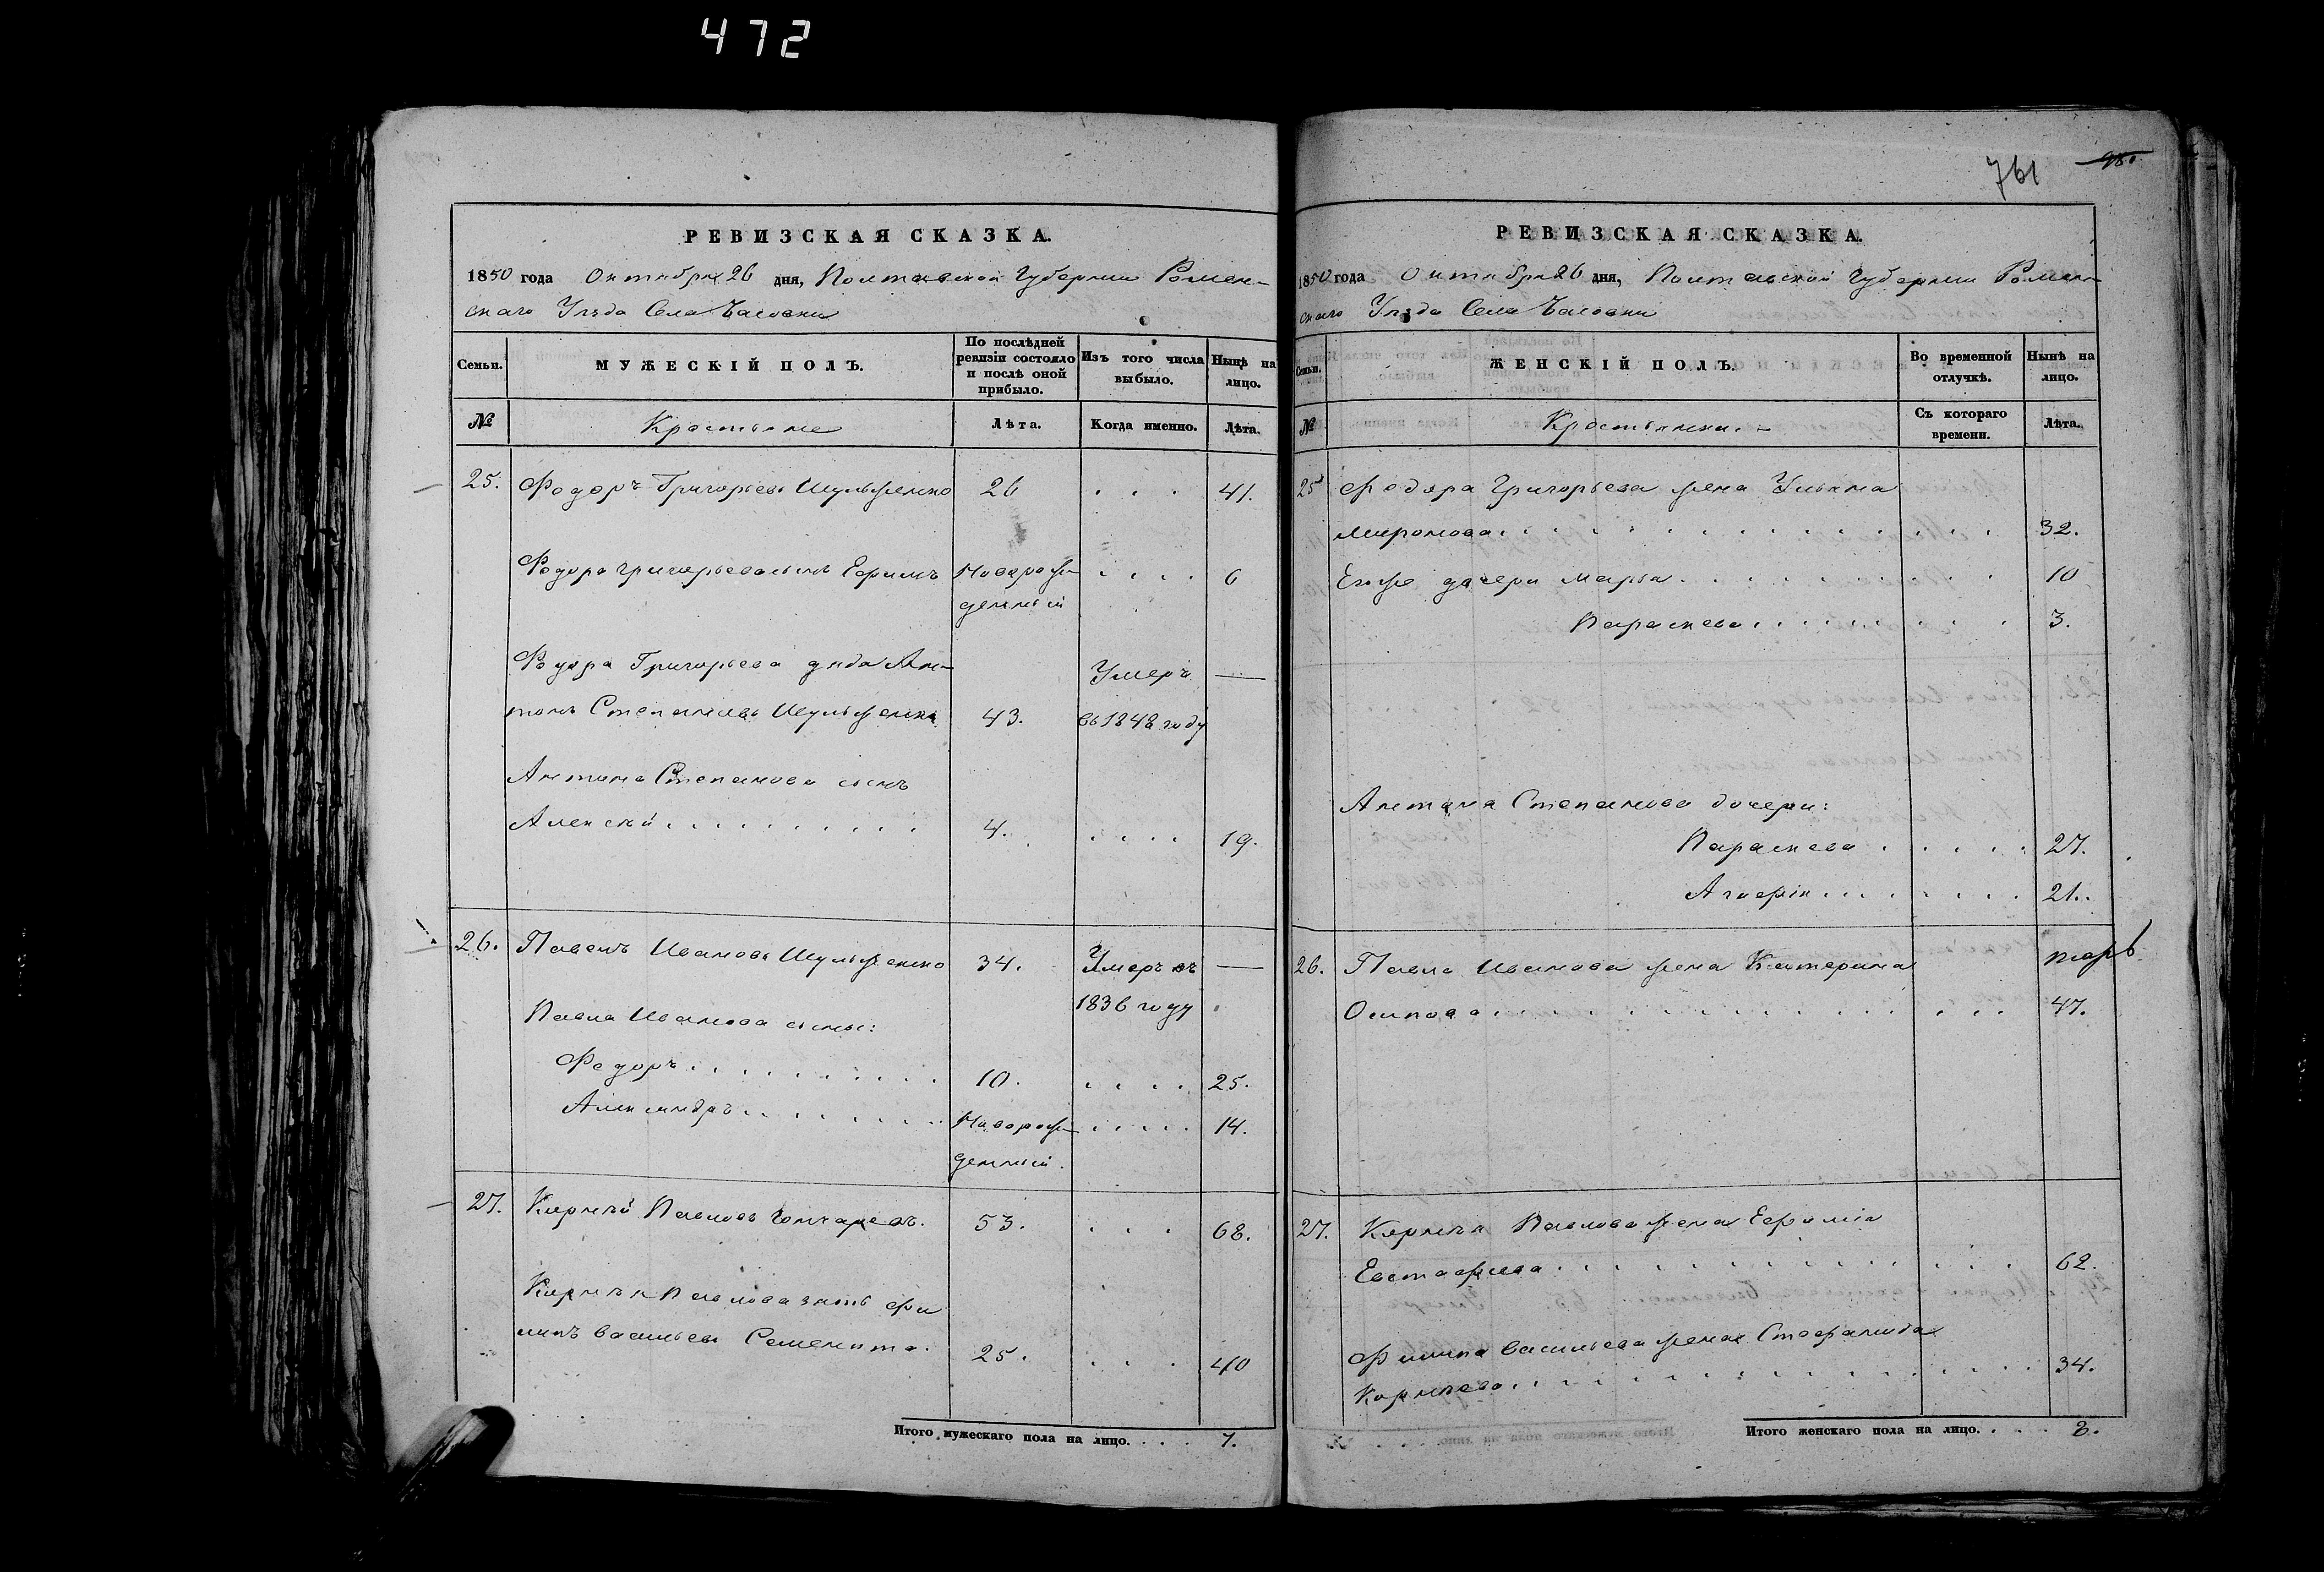 472
РЕВИЗСКАЯ СКАЗКА.
1850 года Октября 26 дня, Полтавской Губернии Ромен-
скаго Уѣзда Села
Семьи.
МУЖЕСКІЙ ПОЛЪ.
По послѣдней ревизіи состояло и послѣ оной прибыло.
Изъ того числа выбыло.
Нынѣ на лицо.
№
Крестьяне
Лѣта.
Когда именно.
Лѣта.
25. Федоръ Григорьевъ Шульженко 26 . . . 41.
Федора Григорьева сынъ Ефимъ Новорож- . . . . 6
денный
Федора Григорьева дядя Ан- Умеръ —
тонъ Степановъ Шульженко 43. въ 1848 году
Антона Степанова сынъ
Алексѣй . . . . . . . . . 4. . . . . 19.
26. Павелъ Ивановъ Шульженко 34. Умеръ въ —
1836 году
Павла Иванова сыны:
Федоръ . . . . . . . . . 10. . . . . 25.
Александръ . . . . . . . Новорож- . . . . . 14.
денный.
27. Корнѣй Павловъ Гончаровъ. 53. . . . 68.
Корнѣя Павлова зять Фи
липъ Васильевъ 25. . . . 40
Итого мужескаго пола на лицо. . . . 7.
761
980
РЕВИЗСКАЯ СКАЗКА.
1850 года Октября 26 дня, Полтавской Губерніи Ромен-
скаго Уѣзда Села
Семьи.
ЖЕНСКІЙ ПОЛЪ.
Во временной отлучкѣ.
Нынѣ на лицо.
№
Крестьянки. -
Съ котораго времени.
Лѣта.
25 Федора Григорьева жена Ульяна
Миронова . . . . . . . . . . . . . 32.
Егоже дочери Марья . . . . . . . . . 10
Параскева . . . . . . . . 3.
Антона Степанова дочери:
Параскева . . . . . . 27.
Агафія . . . . . . . 21.
26. Павла Иванова жена Катерина
Осипова . . . . . . . . . . . . . . 47.
27. Корнѣя Павлова жена Ефимія
Евстафіева . . . . . . . . . . . . . 62.
Филипа Васильева жена Стефанида
Корнѣева . . . . . . . . . . . . . . 34.
Итого женскаго пола на лицо. . . . 8.